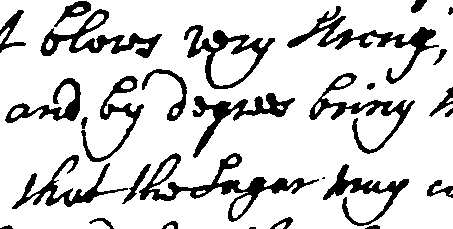 blows very strong,
and by degrees bring
that the Sugar may